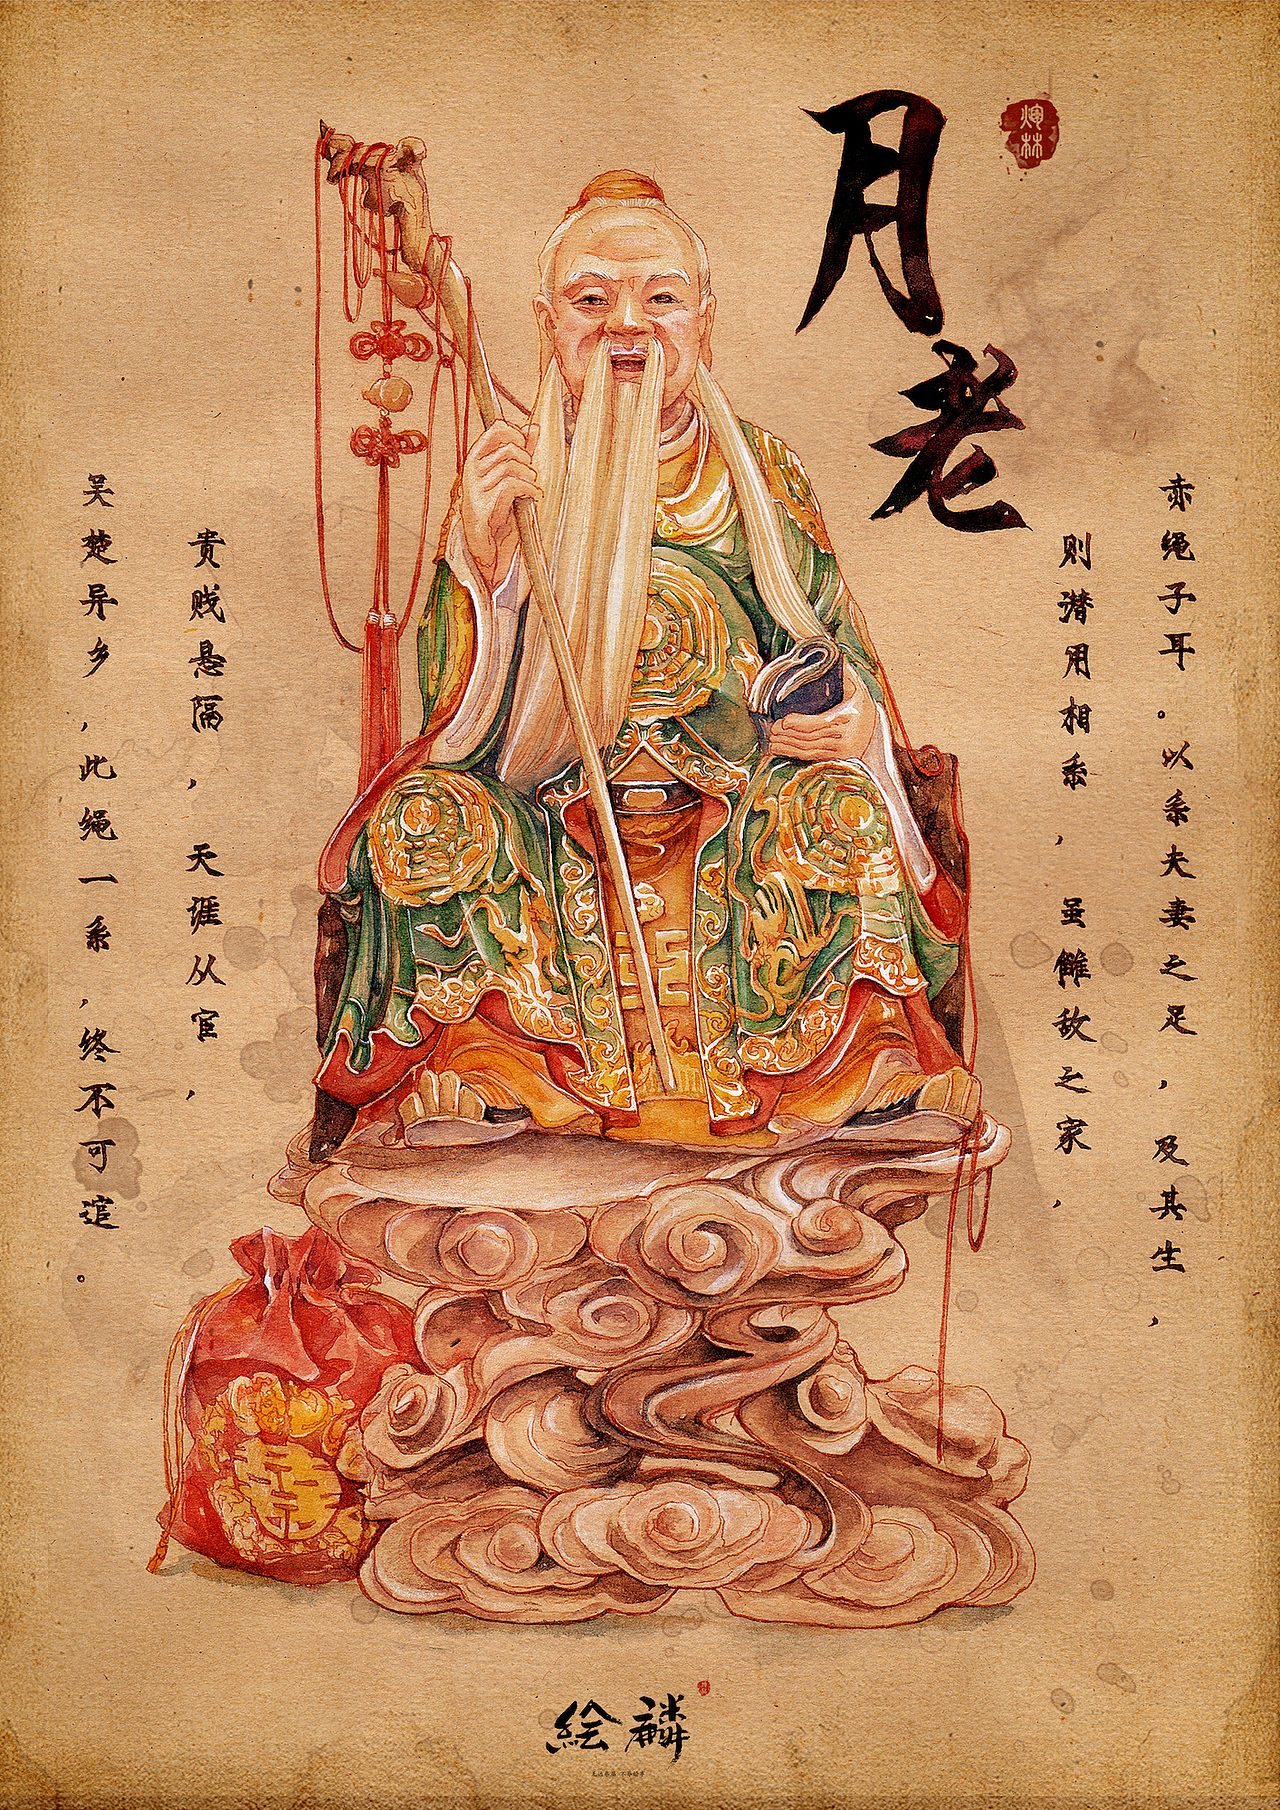 月老
赤绳子耳。以系夫妻之足，及其生，
则潜用相系，虽雠敌之家，
贵贱悬隔，天涯从宦，
吴楚异乡，此绳一系，终不可逭。
绘麟